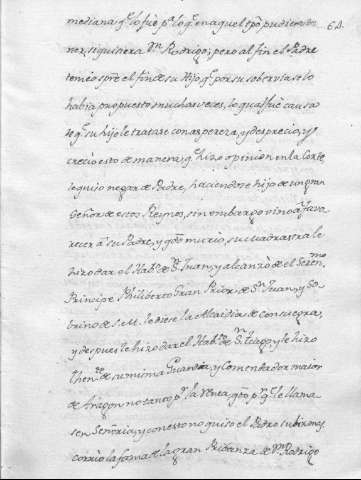 64.
mediana q̃ lo fuè p.ª lo q̃ en aquel tpõ pudiera
ner, siquisiera D.n Rodrigo; pero al fin el Padre
temio spre el fin de su Hijo, q̃ por su soberuia se lo
había propuesto muchas veces, lo qual fuè causa
de q̃ su hijo le tratase con aspereza, y desprecio, y
creciò esto de manera, q̃ hizo opinion en la Corte,
le quiso negar de Padre, haciendose hijo de un gran
Señor de estos Reynos, sin embargo vino à favo
recer à su Padre, y qdo murio, su Madrastra le
hizo dar el Hab.to de S.n Juan, y alcanzò de el Seren.mo
Principe Philiberto Gran Prior de S.n Juan, y So
brino de S. M. le diese la Alcaidia de Consuegra,
y despues le hizo dar el Hab.to de S.n Tiago, y le hizo
then.te de su misma Guardia, y Comendador maior
de Aragon, no tanto p.r la Renta, qto p.r q̃ le llama
sen Señoria, y con esto no quiso el Pedro subir mas,
corriò la fama de la gran Pribanza de D.n Rodrigo